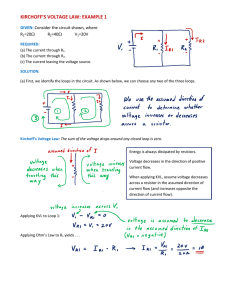 KIRCHOFF'S VOLTAGE LAW: EXAMPLE 1
GIVEN: Consider the circuit shown, where
R₁=20Ω R₂=40Ω V₁=20V
REQUIRED:
(a) The current through R₁.
(b) The current through R₂.
(c) The current leaving the voltage source
I
I R1
I R2
V₁
R₁
R₂
SOLUTION:
(a) First, we identify the loops in the circuit. As shown below, we can choose any two of the three loops.
We use the assumed direction of
current to determine whether
voltage increases or decreases
across a resistor.
Kirchoff's Voltage Law: The sum of the voltage drops around any closed loop is zero.
assumed direction of I
voltage
decreases
when
traveling this
way
voltage increases
when
traveling
this way
Energy is always dissipated by resistors.
Voltage decreases in the direction of positive
current flow.
When applying KVL, assume voltage decreases
across a resistor in the assumed direction of
current flow (and increases opposite the
direction of current flow).
voltage increase across V₁
Applying KVL to Loop 1:
V₁ - V R1 = 0
V R1 = V₁ = 20V
voltage is assumed to decrease
in the assumed direction of I R1
(V R1 = negative)
Applying Ohm's Law to R₁ yields . . .
V R1 = I R1 · R₁
I R1 = V R1 / R₁ = 20V / 20Ω = 1A